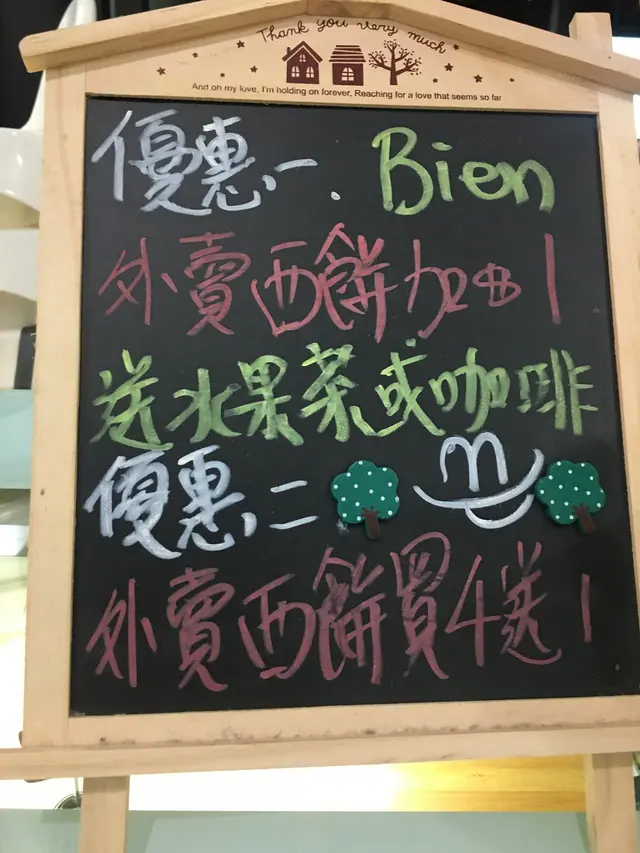 Thank you very much
And oh my love, I'm holding on forever, Reaching for a love that seems so far
優惠一. Bien
外賣西餅加$1
送水果茶或咖啡
優惠二
外賣西餅買4送1